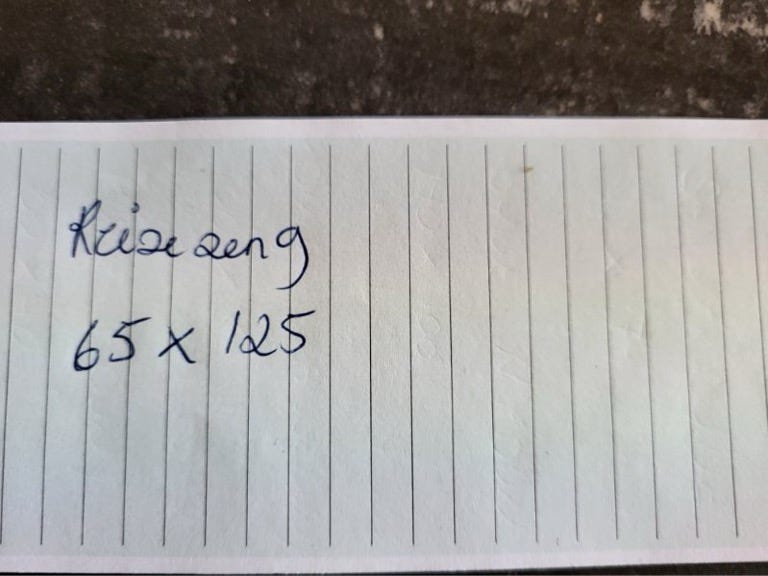 Reiseseng
65 x 125